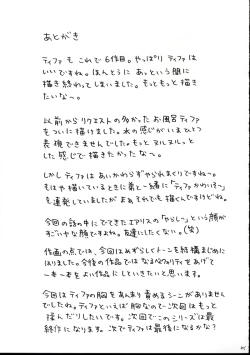 あとがき
ティファ も これで 6作目。やっぱり ティファは
いいですね。ほんとうに あっという間に
描き終わってしまいました。もっともっと描き
たいな〜。
以前からリクエストの多かったお風呂ティファ
をついに描けました。水の感じがいまひとつ
表現できませんでした。もっとヌルヌルっと
した感じで描きたかったな〜。
しかしティファはあいかわらずやられまくりですね〜。
もはや描いているときに弟と一緒に「ティファかわいそ〜」
を連発していましたがまぁそれでも描くんですけどね。
今回の話の中にでてきたエアリスの「からし〜」という顔が
すごいヤな顔ですよね。友達にしたくない。(笑)
作画の点では、今回はあずらしくトーンを結構まじめに
はりました。今後の作品では なるべくクオリティをあげて
一本一本をよい作品にしていきたいと思います。
今回はティファの胸をあんまり責めるシーンがありません
でしたね。ティファといえば胸なので次回はもっと
揉んだりしたいです。次回でこのシリーズは最
終作になります。次でティファは最後になるかな?